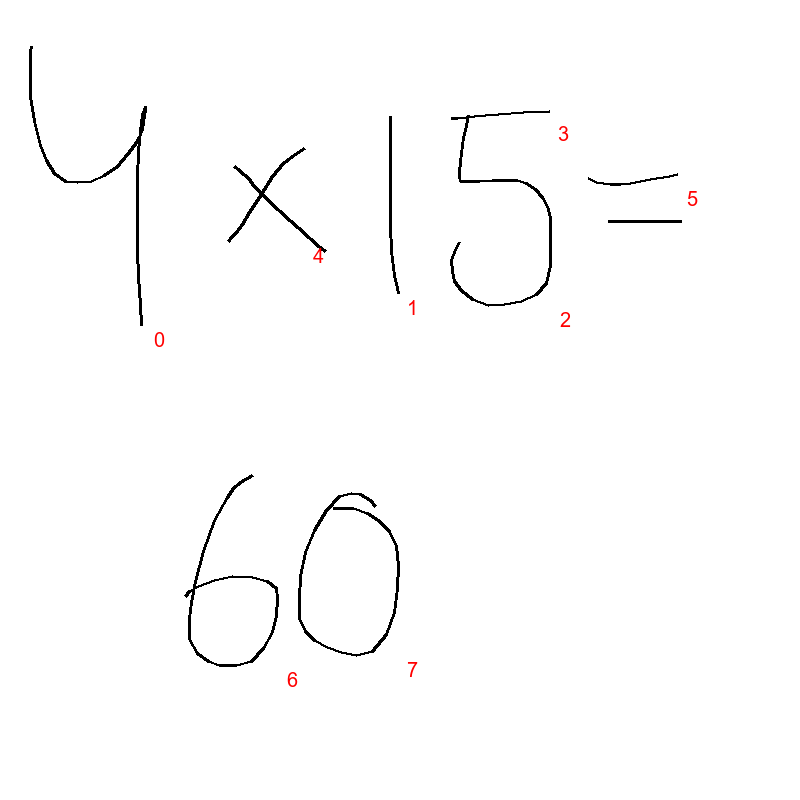 4 × 15 =
0 4 1 3 2 5
60
6 7